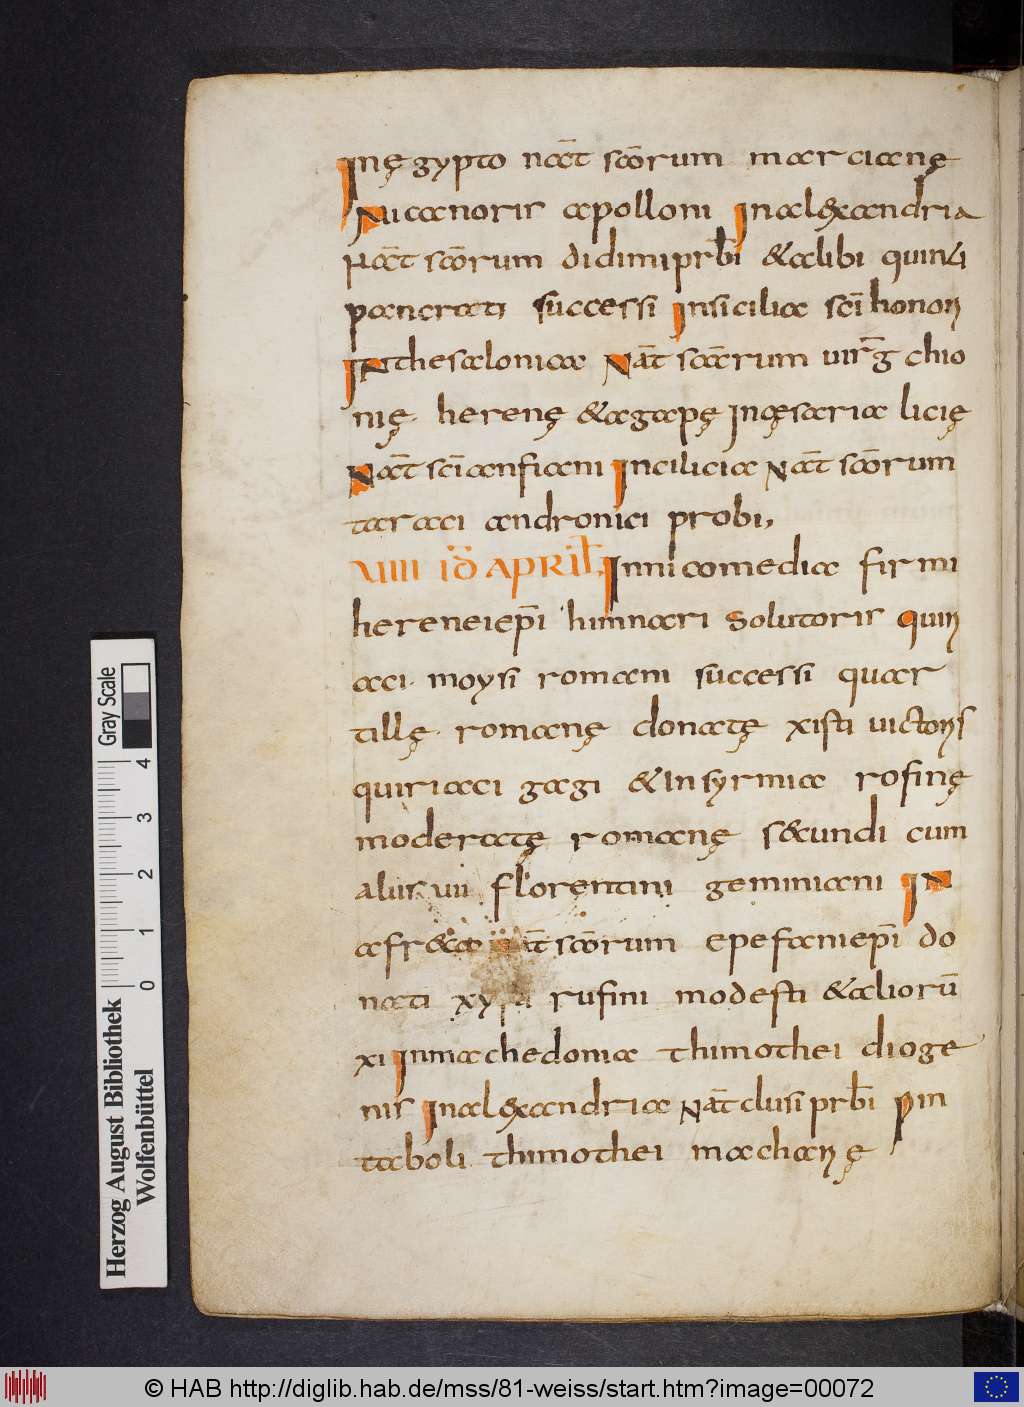 Inęgypto nat̄ scōrum marcianę
Nicanoris apolloni Inalexandria
Nat̄ scōrum didimi prb̄i &alibi quinti
pancrati successi Insicilia scī honori
INthesalonica Nat̄ scārum uirḡ chio
nię. herenę &agapę Incęsaria licię
Nat̄ scī anfiani Incilicia Nat̄ scōrum
taraci andronici probi,
VIIII ID APRIL̄. Innicomedia firmi
herenei ep̄i himnari Solutoris quiri
aci. moysi romani successi quar
tillę. romanę donatę xisti uictoris
quiriaci gagi & In syrmia rofinę
moderatę romanę s&cundi cum
aliis uii florentini geminiani IN
afr&ca nat̄ scōrum epefani ep̄i do
nati xysti rufini modesti &aliorū
xi Inmachedonia thimothei dioge
nis Inalexandria Nat̄ clusi prb̄i Pin
taboli thimothei macharię
Gray Scale
4
3
2
1
0
Herzog August Bibliothek
Wolfenbüttel
© HAB http://diglib.hab.de/mss/81-weiss/start.htm?image=00072